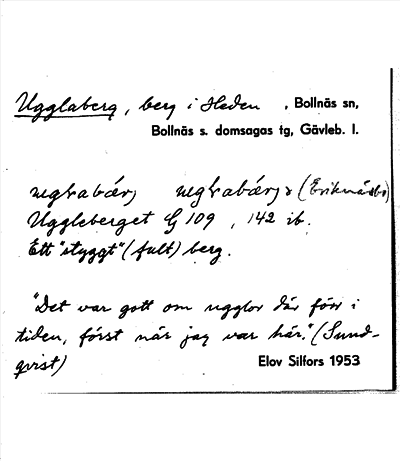 Ugglaberg, berg i Heden , Bollnäs sn,
Bollnäs s. domsagas tg, Gävleb. l.
Uggleberget G 109 , 142 ib.
Ett "styggt" (fult) berg.
"Det var gott om ugglor där förr i
tiden, först när jag var här." (Sund-
qvist)
Elov Silfors 1953